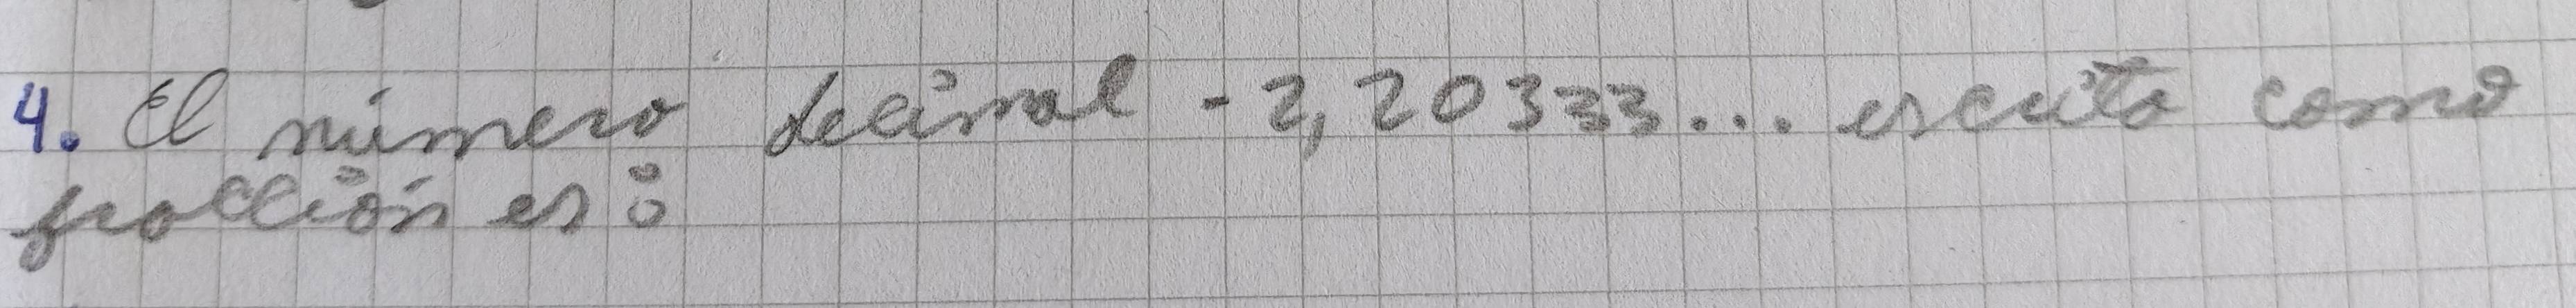 4. El número decimal -2,20333... escrito como
fracción es: